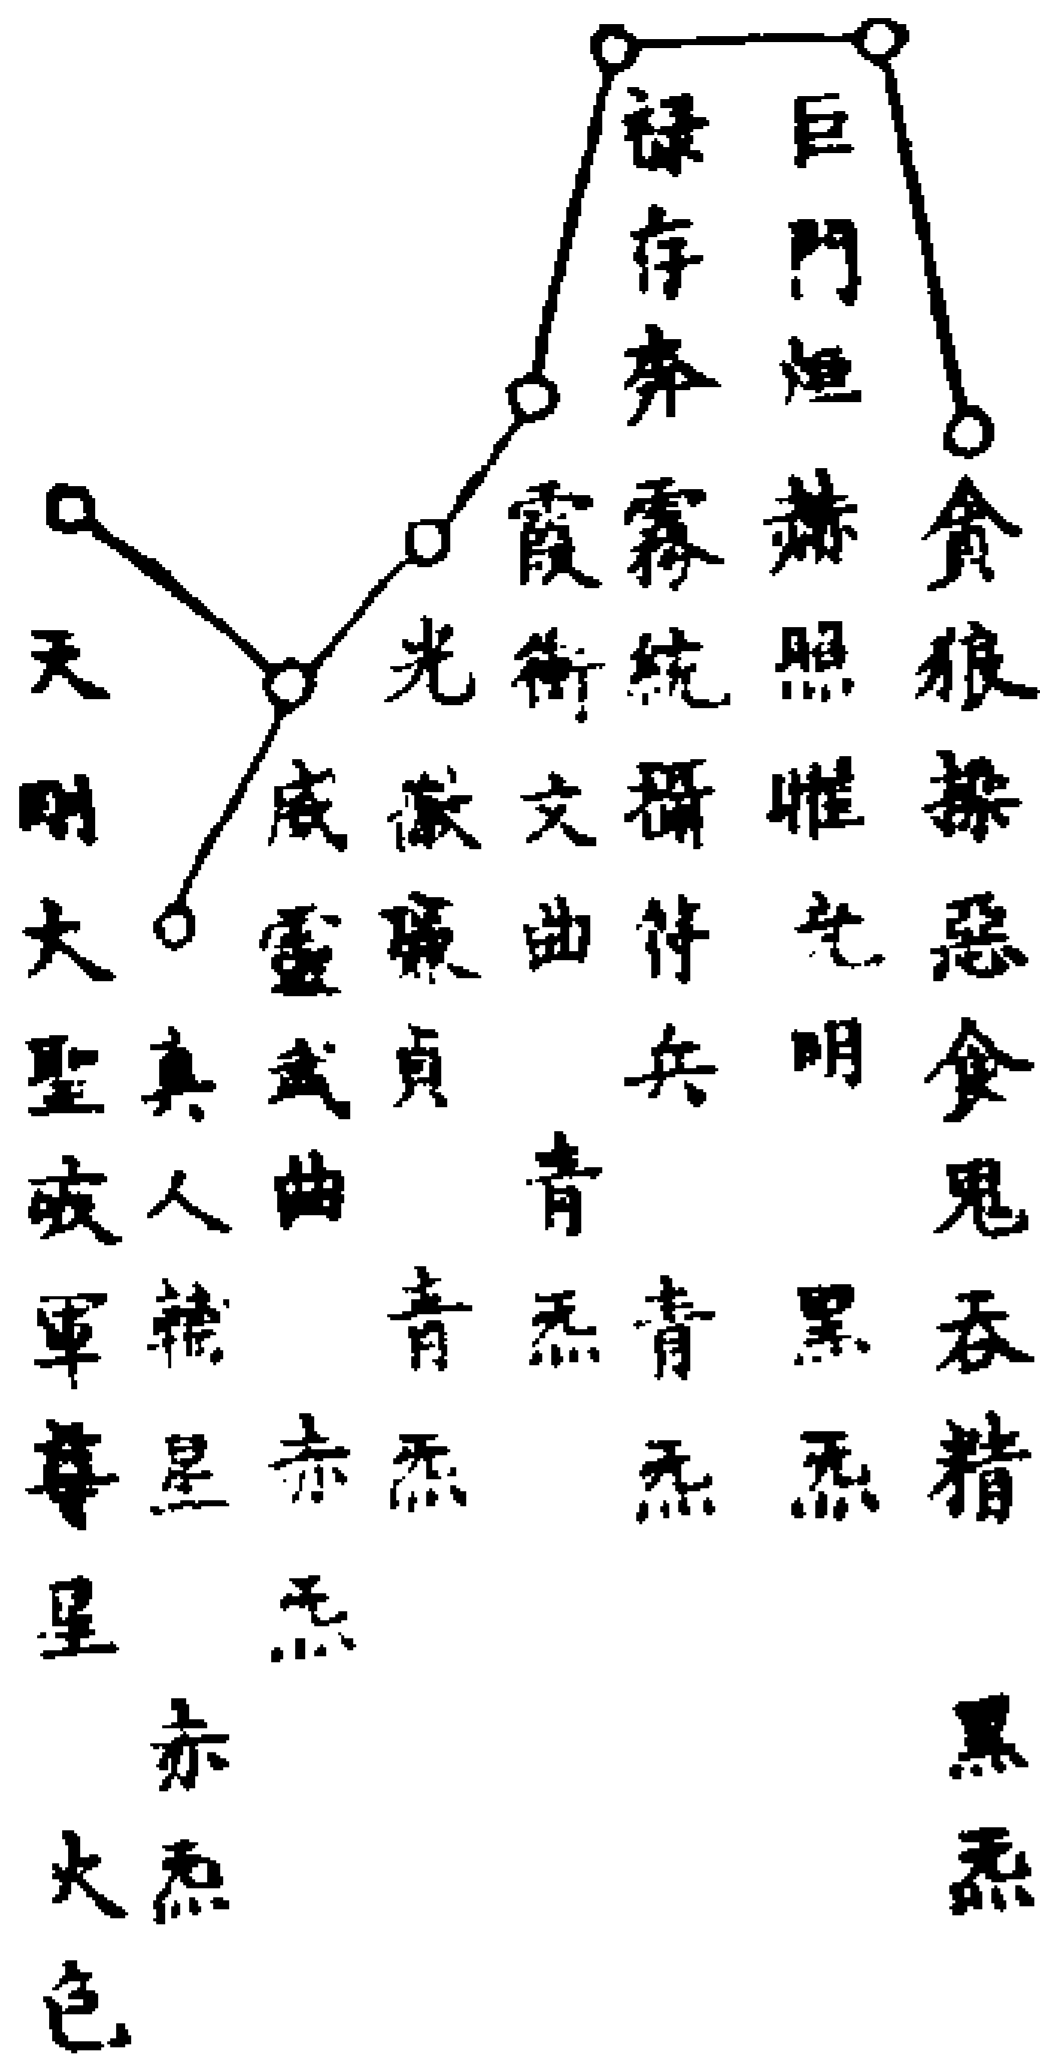 貪狼操惡食鬼吞精 黑炁
巨門烜赫照耀光明 黑炁
祿存奔霧統攝陰兵 青炁
霞衝文曲 青炁
光徹廉貞 青炁
威靈武曲 赤炁
真人輔星 赤炁
天剛大聖破軍尊星 火色